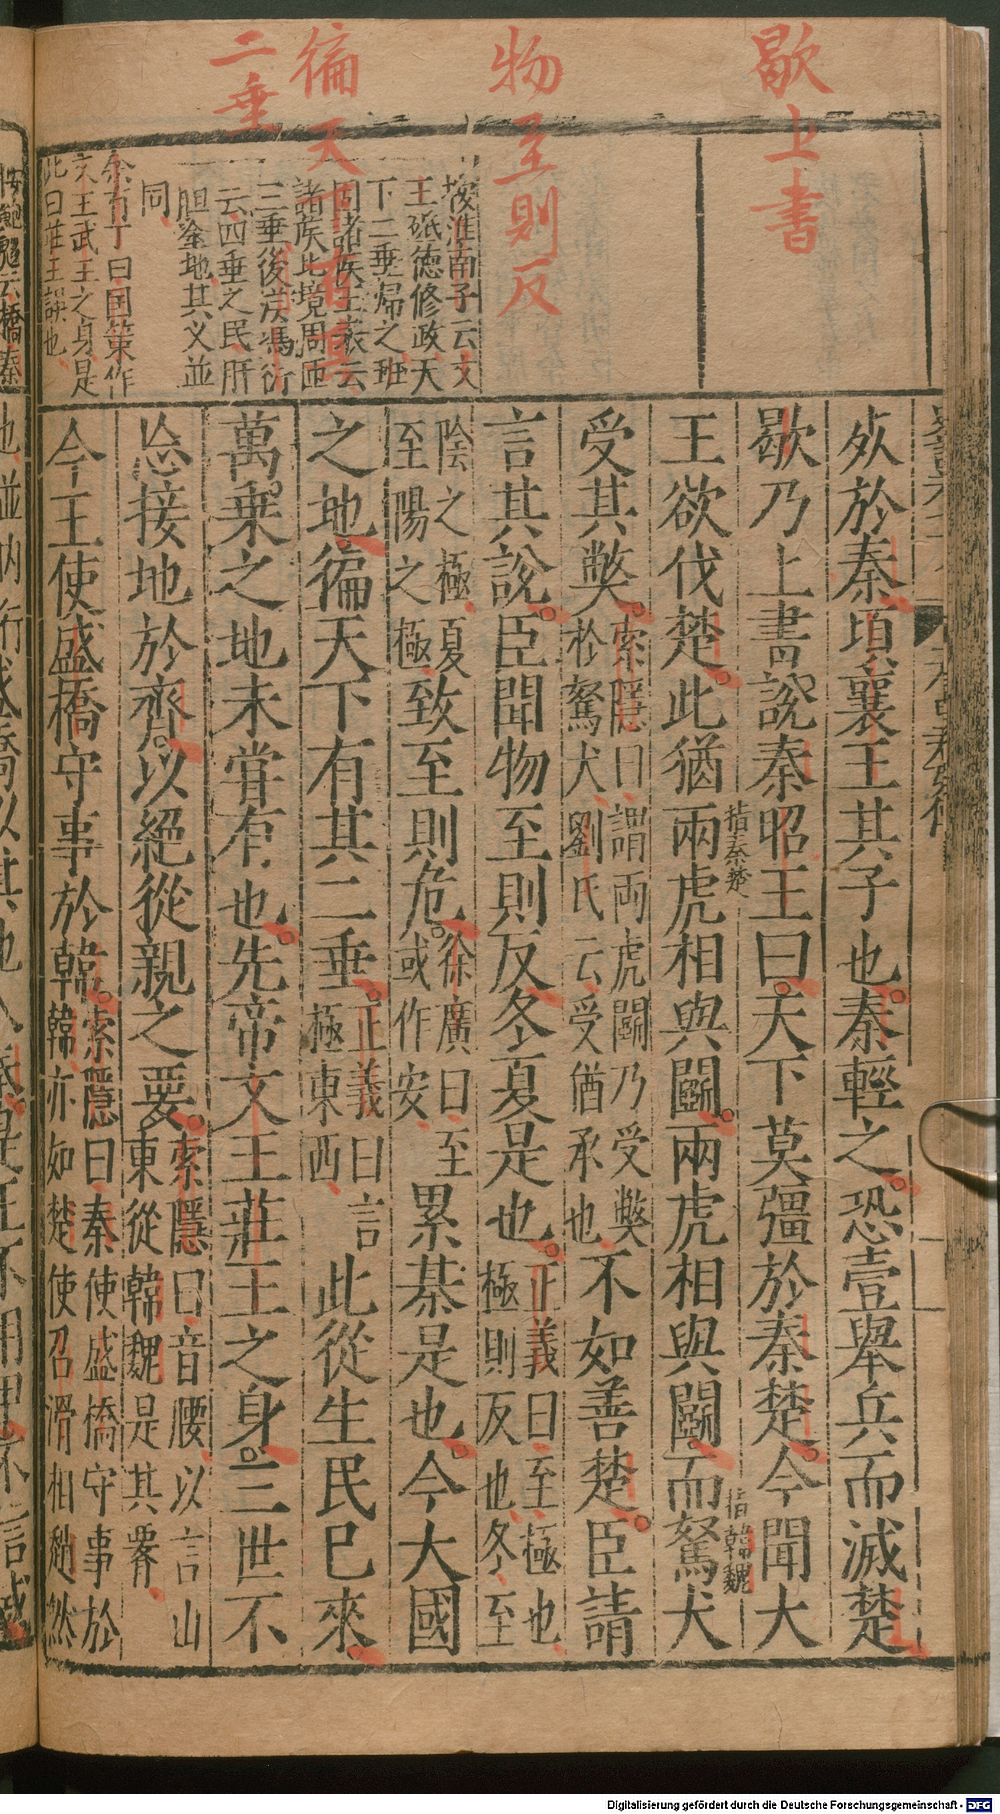 歇上書
物至則反
徧天下有其
二垂
按淮南子云文
王砥德修政天
下二垂歸之班
固諸侯王表云
諸侯比境周匝
三垂後漢馮衍
云四垂之民肝
胆塗地其义並
同
余有丁曰国策作
文王武王之身是
此曰莊王誤也
死於秦頃襄王其子也秦輕之恐壹舉兵而滅楚
歇乃上書說秦昭王曰天下莫彊於秦楚今聞大
指秦楚
指韓魏
王欲伐楚此猶兩虎相與鬭兩虎相與鬭而駑犬
受其弊索隱曰謂兩虎鬭乃受弊
於駑犬劉氏云受猶承也不如善楚臣請
言其說臣聞物至則反冬夏是也正義曰至極也
極則反也冬至
陰之極夏
至陽之極致至則危徐廣曰至
或作安累棊是也今大國
之地徧天下有其二垂正義曰言
極東西此從生民已來
萬乘之地未甞有也先帝文王莊王之身三世不
忩接地於齊以絕從親之要索隱曰音腰以言山
東從韓魏是其要
今王使盛橋守事於韓索隱曰秦使盛橋守事於
韓亦如楚使召滑相趙然
Digitalisierung gefördert durch die Deutsche Forschungsgemeinschaft - DFG